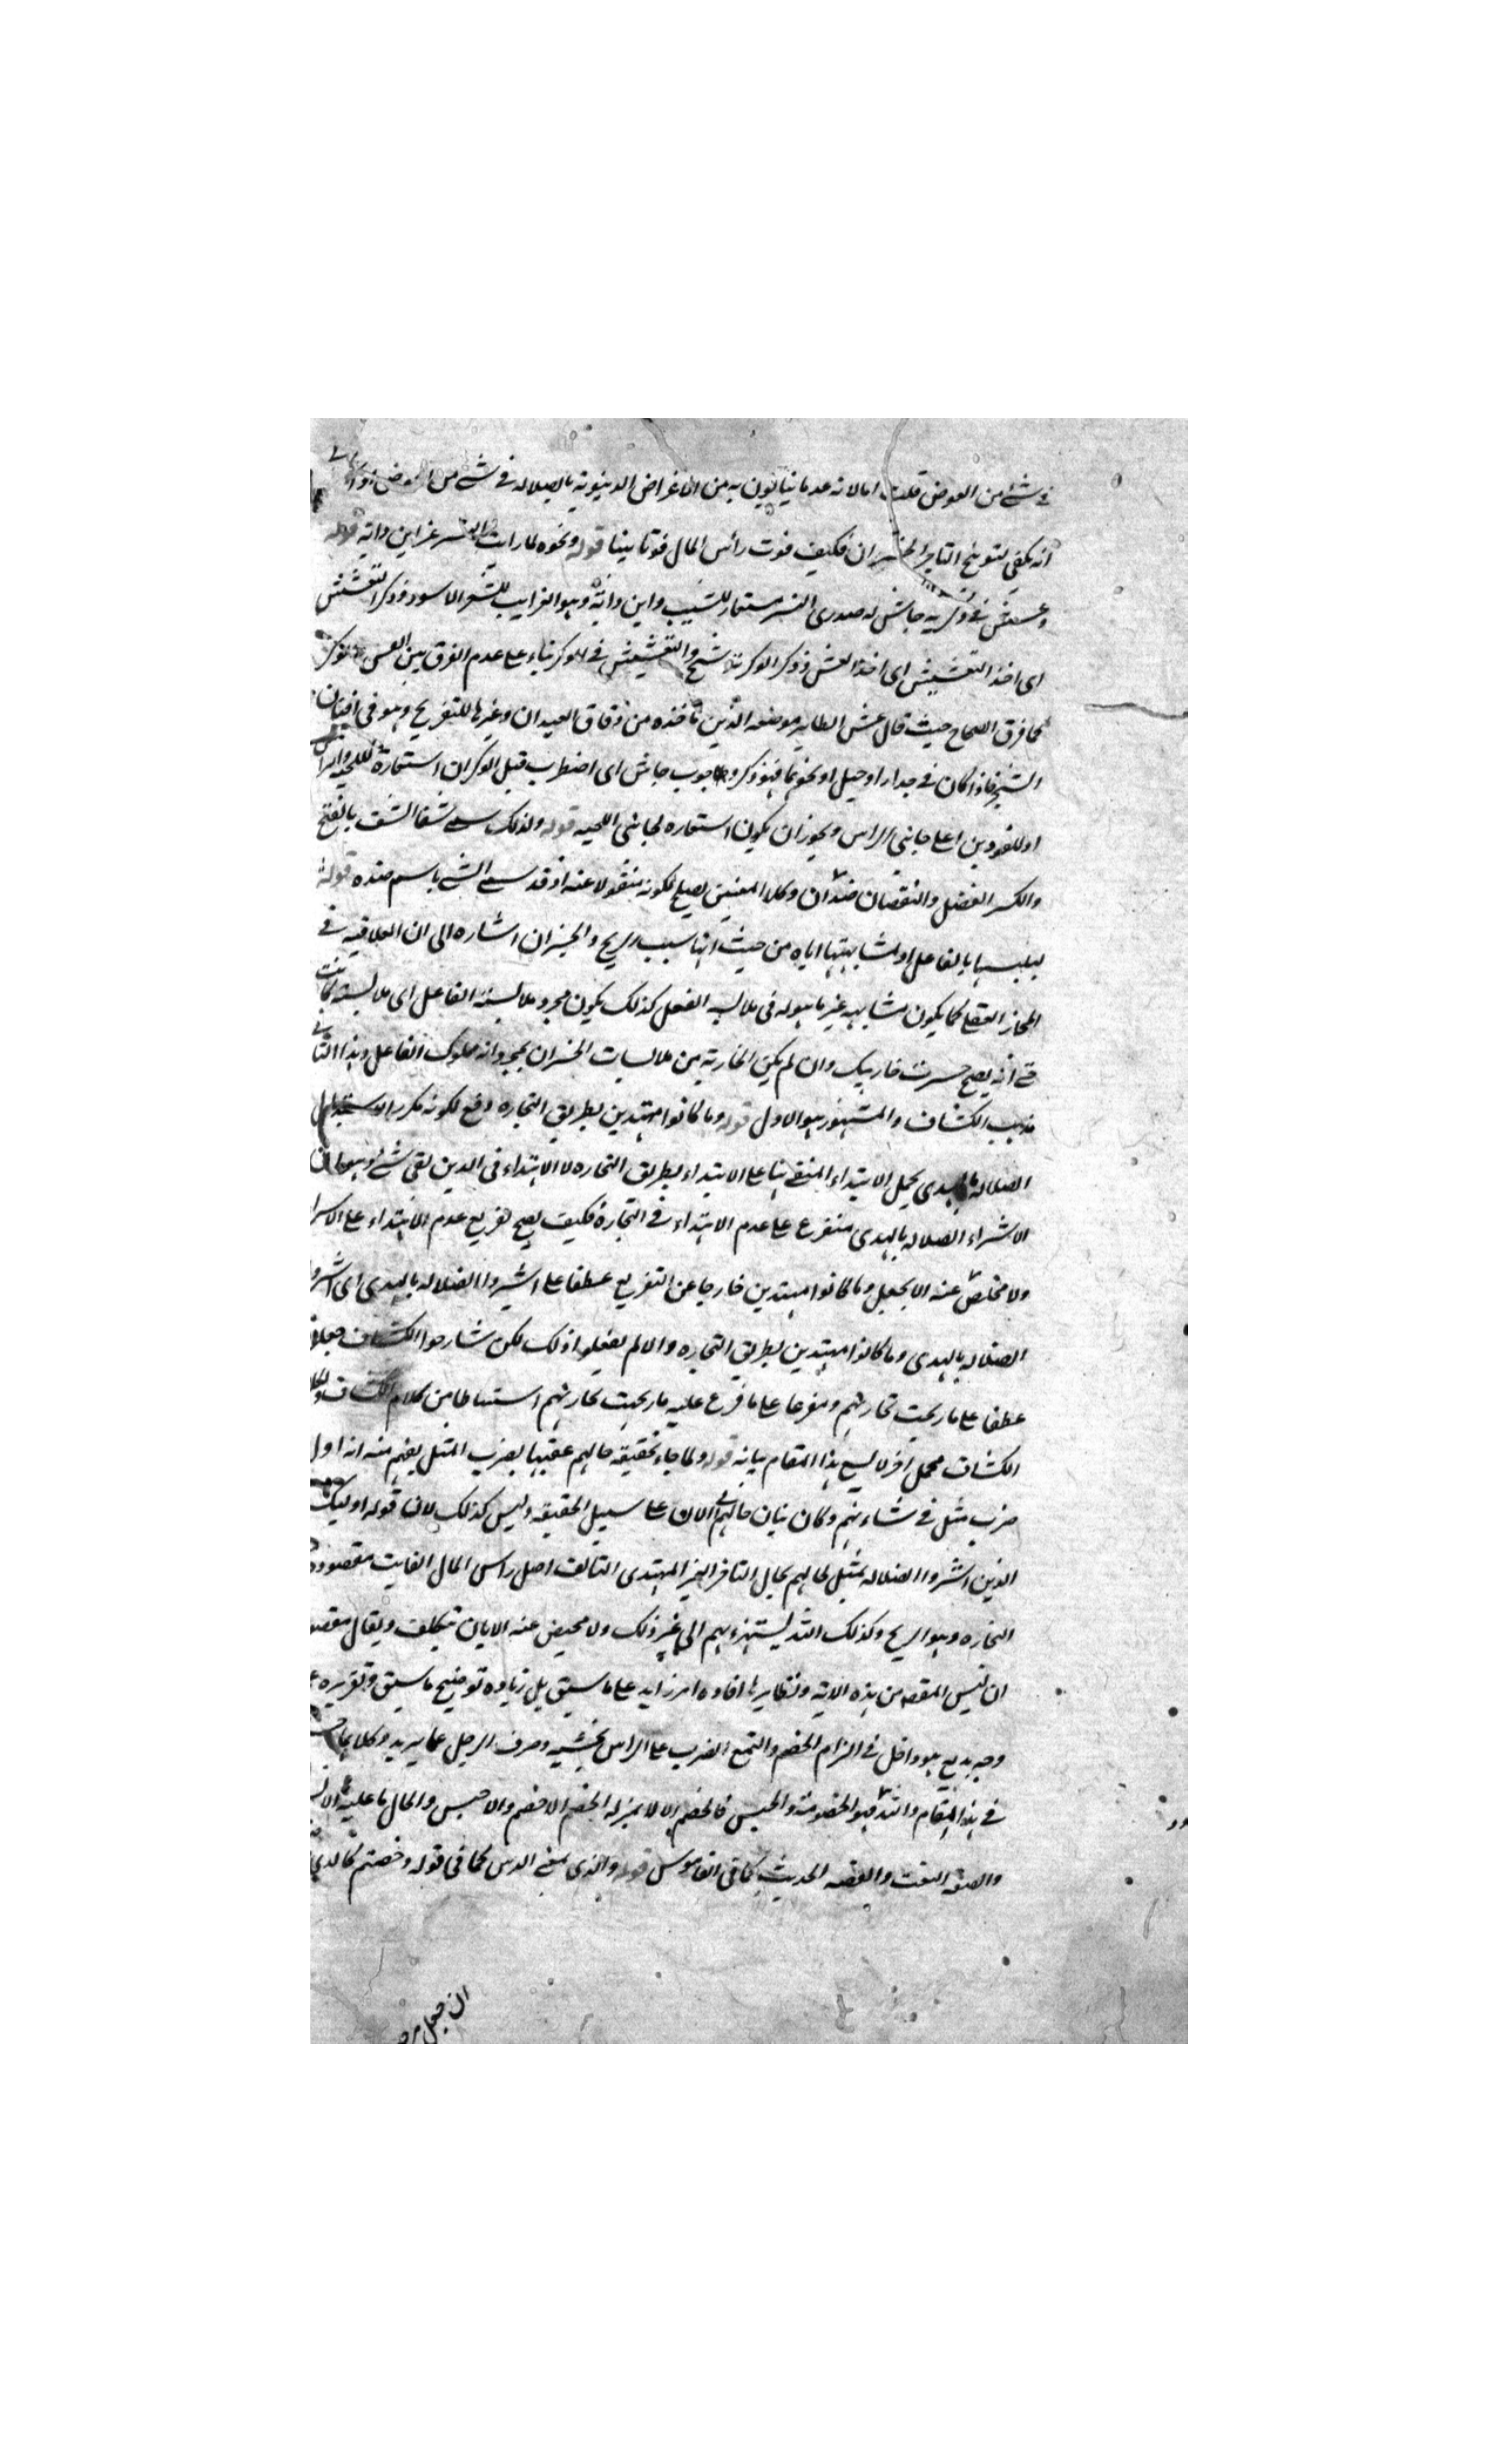 فى شئ من العوض قلت اما لانه عد ما نيا لون به من الاغراض الدنيويه بالضلاله فى شئ من العوض
انه يكفى لتوبيخ التاجر الخسران فكيف فوت رأس المال فوتا بينا قوله ونحوه لما رايت النسر عز ابن دايه
وعشش فى وكريه جاش له صدرى النسر مستعار للشيب وابن دايه وهو الغراب للشعر الاسود وذكر التعشيش
اى اخذ التعشيش اى اخذ العش وذكر الوكر ترشيح والتعشيش فى الوكر بناء على عدم الفرق بين العش
كما فرق الصحاح حيث قال عش الطاير موضعه الذى تاخذه من دقاق العيدان وغيرها للتفريخ وهو فى افنان
الشجر فاذا كان فى جدار او جبل او نحوهما فهو وكر وجوب جاش اى اضطرب قيل الوكران استعارة للحيه والراس
او للفودين اعلى جانبى الراس ويجوز ان يكون استعاره لجانبى اللحيه قوله ولذلك سمى شفا الشف بالفتح
والكسر الفضل والنقصان ضدان وكلا المعنيين يصلح لكونه منقولا عنه اذ قد سمى الشئ باسم ضده قوله
لتلبسها بالفاعل او لمشابهتها اياه من حيث انها سبب الربح والخسران اشاره الى ان العلاقه فى
المجاز العقلى كما يكون مشابهه غير ما هو له فى ملابسه الفعل كذلك يكون مجرد ملابسة الفاعل اى ملابسة كانت
حتى انه يصح خسرت جاريتك وان لم يكن الجاريه من ملابسات الخسران بمجرد انه مملوك الفاعل وهذا الثانى
مذهب الكشاف والمشهور هو الاول قوله وما كانوا مهتدين بطريق التجاره دفع لكونه مكررا
الضلاله بالهدى بحمل الاهتداء المنفى هنا على الاهتداء بطريق التجاره لا الاهتداء فى الدين بقى شئ وهو ان
الاشراء الضلاله بالهدى متفرع على عدم الاهتداء فى التجارة فكيف يصح تفريع عدم الاهتداء على
ولا مخلص عنه الا بجعل وما كانوا مهتدين خارجا عن التفريع عطفا على اشتروا الضلاله بالهدى اى اشتروا
الضلاله بالهدى وما كانوا مهتدين بطريق التجاره والا لم يفعلوا ذلك لكن شارحوا الكشاف جعلا
عطفا على ما ربحت تجارتهم ومفرعا على ما فرع عليه ما ربحت تجارتهم استنباطا من كلام الكشاف
الكشاف محمل اخر لا يسع هذا المقام بيانه قوله ولما جاء بحقيقه حالهم عقبها بضرب المثل يفهم منه انه اول
ضرب مثل فى شاءنهم وكان بيان حالهم الى الان على سبيل الحقيقه وليس كذلك لان قوله اوليك
الذين اشتروا الضلاله تمثيل لحالهم بحال التاجر الغير المهتدى التالف اصل راس المال الفايت مقصوده
التجاره وهو الربح وكذلك الله يستهزء بهم الى غير ذلك ولا محيص عنه الا بان يتكلف ويقال
ان ليس المقصد من هذه الايه ونظايرها افاده امر زايد على ما سبق بل زياده توضيح ما سبق وتقريره
وجه بديع هو داخل فى الزام الخصم والقمع الضرب على الراس بخشبه وصرف الرجل عما يريد وكلاهما
فى هذا المقام والله فهو الخصومة والحبس فالخصم الالد بمنزله الخصم الاخصم والاحبس والحال ما عليه
والصفه النعت والقصه الحديث كما فى القاموس قوله والذى بمعنى الذين كما فى قوله وخضتم كالذى